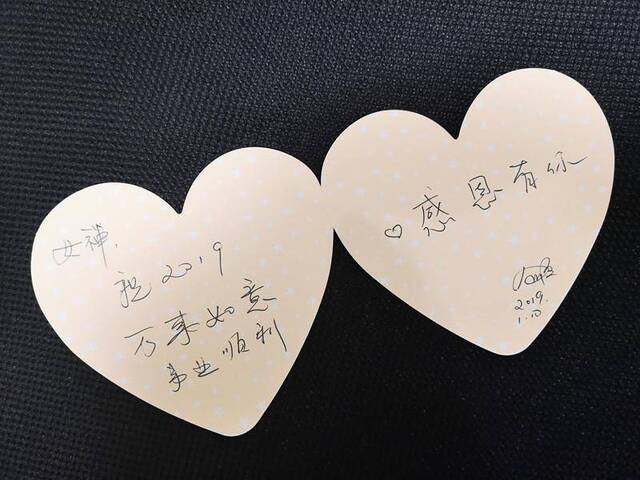 女神,
祝2019
万事如意
事业顺利
♡感恩有你
2019.
1.10